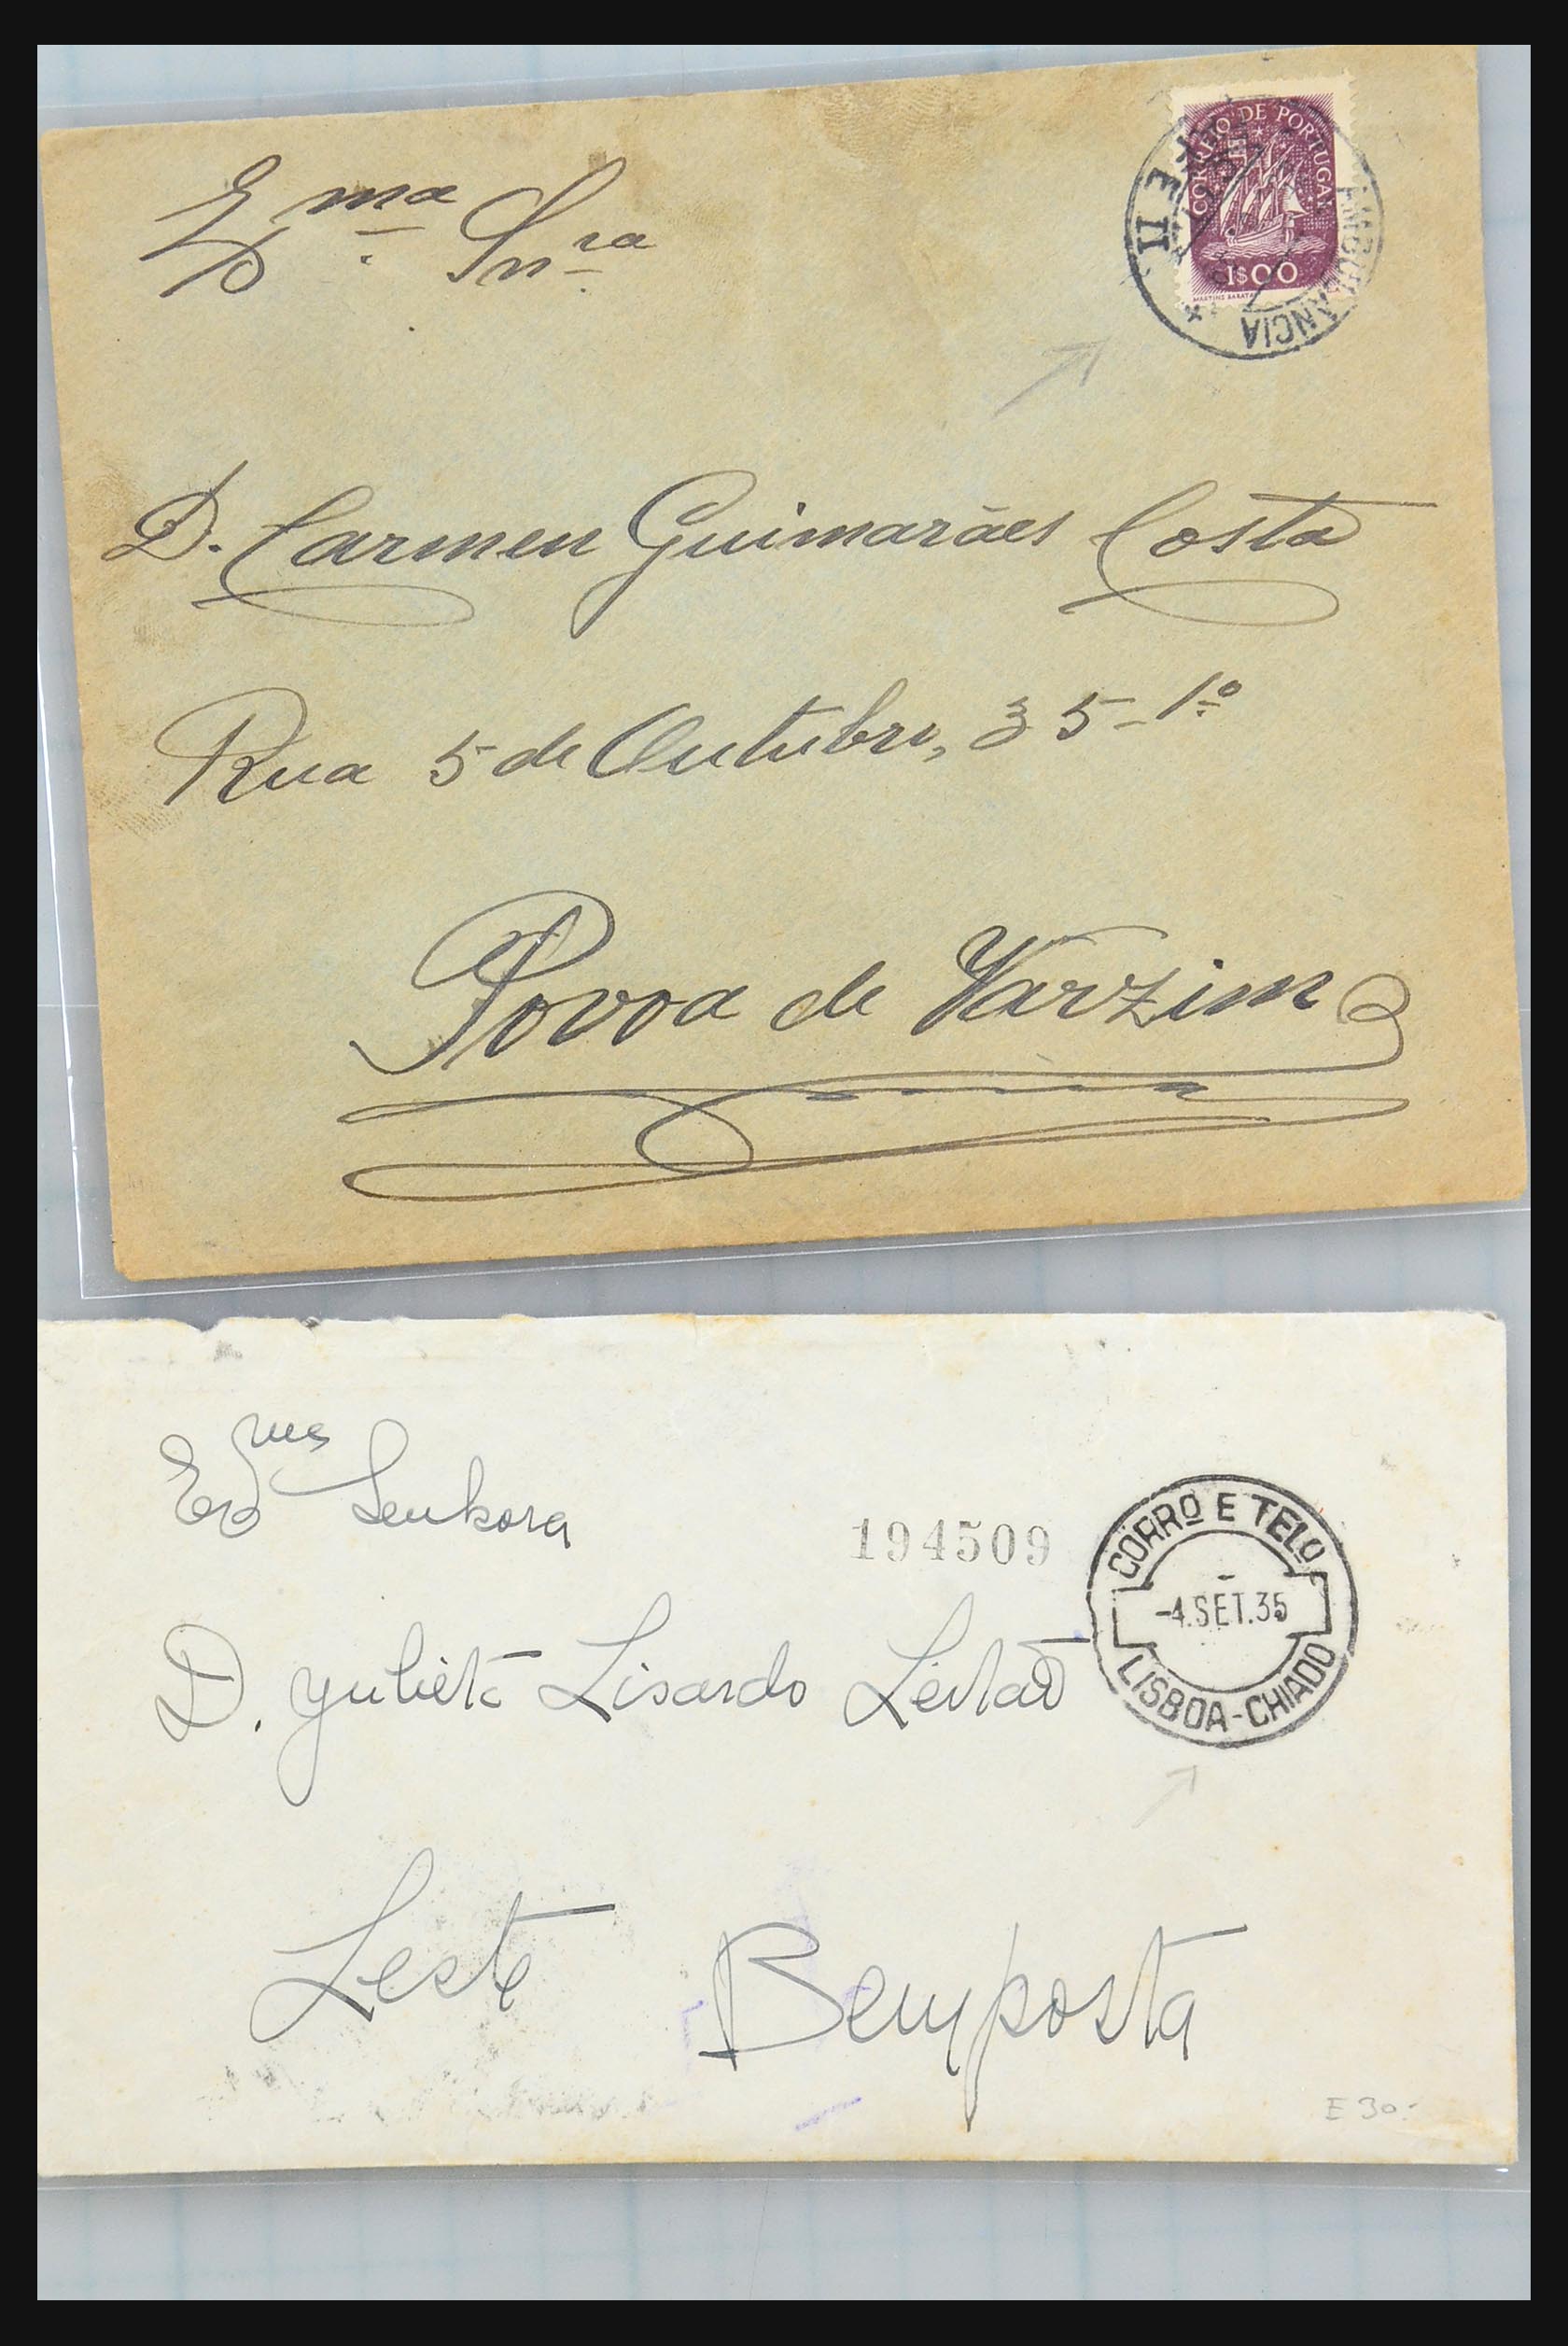 CORREIO DE PORTUGAL
1$00
MARTINS BARATA
AMBULANCIA
II
Exma Snra
D. Carmen Guimarães Costa
Rua 5 de Outubro, 35-1º
Povoa de Varzim
Exma Senhora
194509
CORRO E TELO
-4.SET.35
LISBOA-CHIADO
D. Julieta Lisardo Leitão
Leste Bemposta
E 30.-